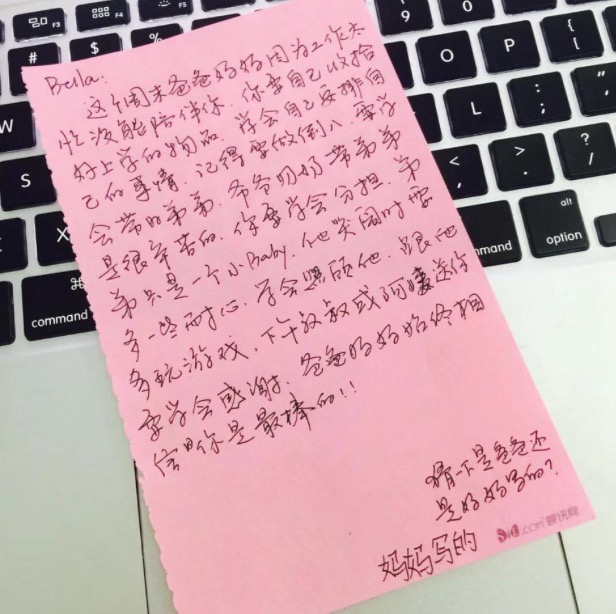 Bella:
这个周末爸爸妈妈因为工作太
忙没能陪伴你,你要自己收拾
好上学的物品,学会自己安排自
己的事情,记得要做到八 要学
会带好弟弟,爷爷奶奶带弟弟
是很辛苦的,你要学会分担,弟
弟只是一个小Baby,他哭闹时要
多一些耐心,学会照顾他,跟他
多玩游戏,下午叔叔或阿姨送你
要学会感谢,爸爸妈妈始终相
信你是最棒的!!
猜一下是爸爸还
是妈妈写的?
妈妈写的
.com 蝉讯网
W
S
#
$
%
9
0
O
P
L
<
,
>
.
?
/
:
;
F3
F4
F5
command
command
alt
option